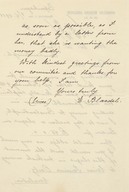 as soon as possible, as I
understand by a letter from
her that she is wanting the
money badly.
With kindest greetings from
our committee and thanks for
your help, I am
Yours truly
J. Blundel